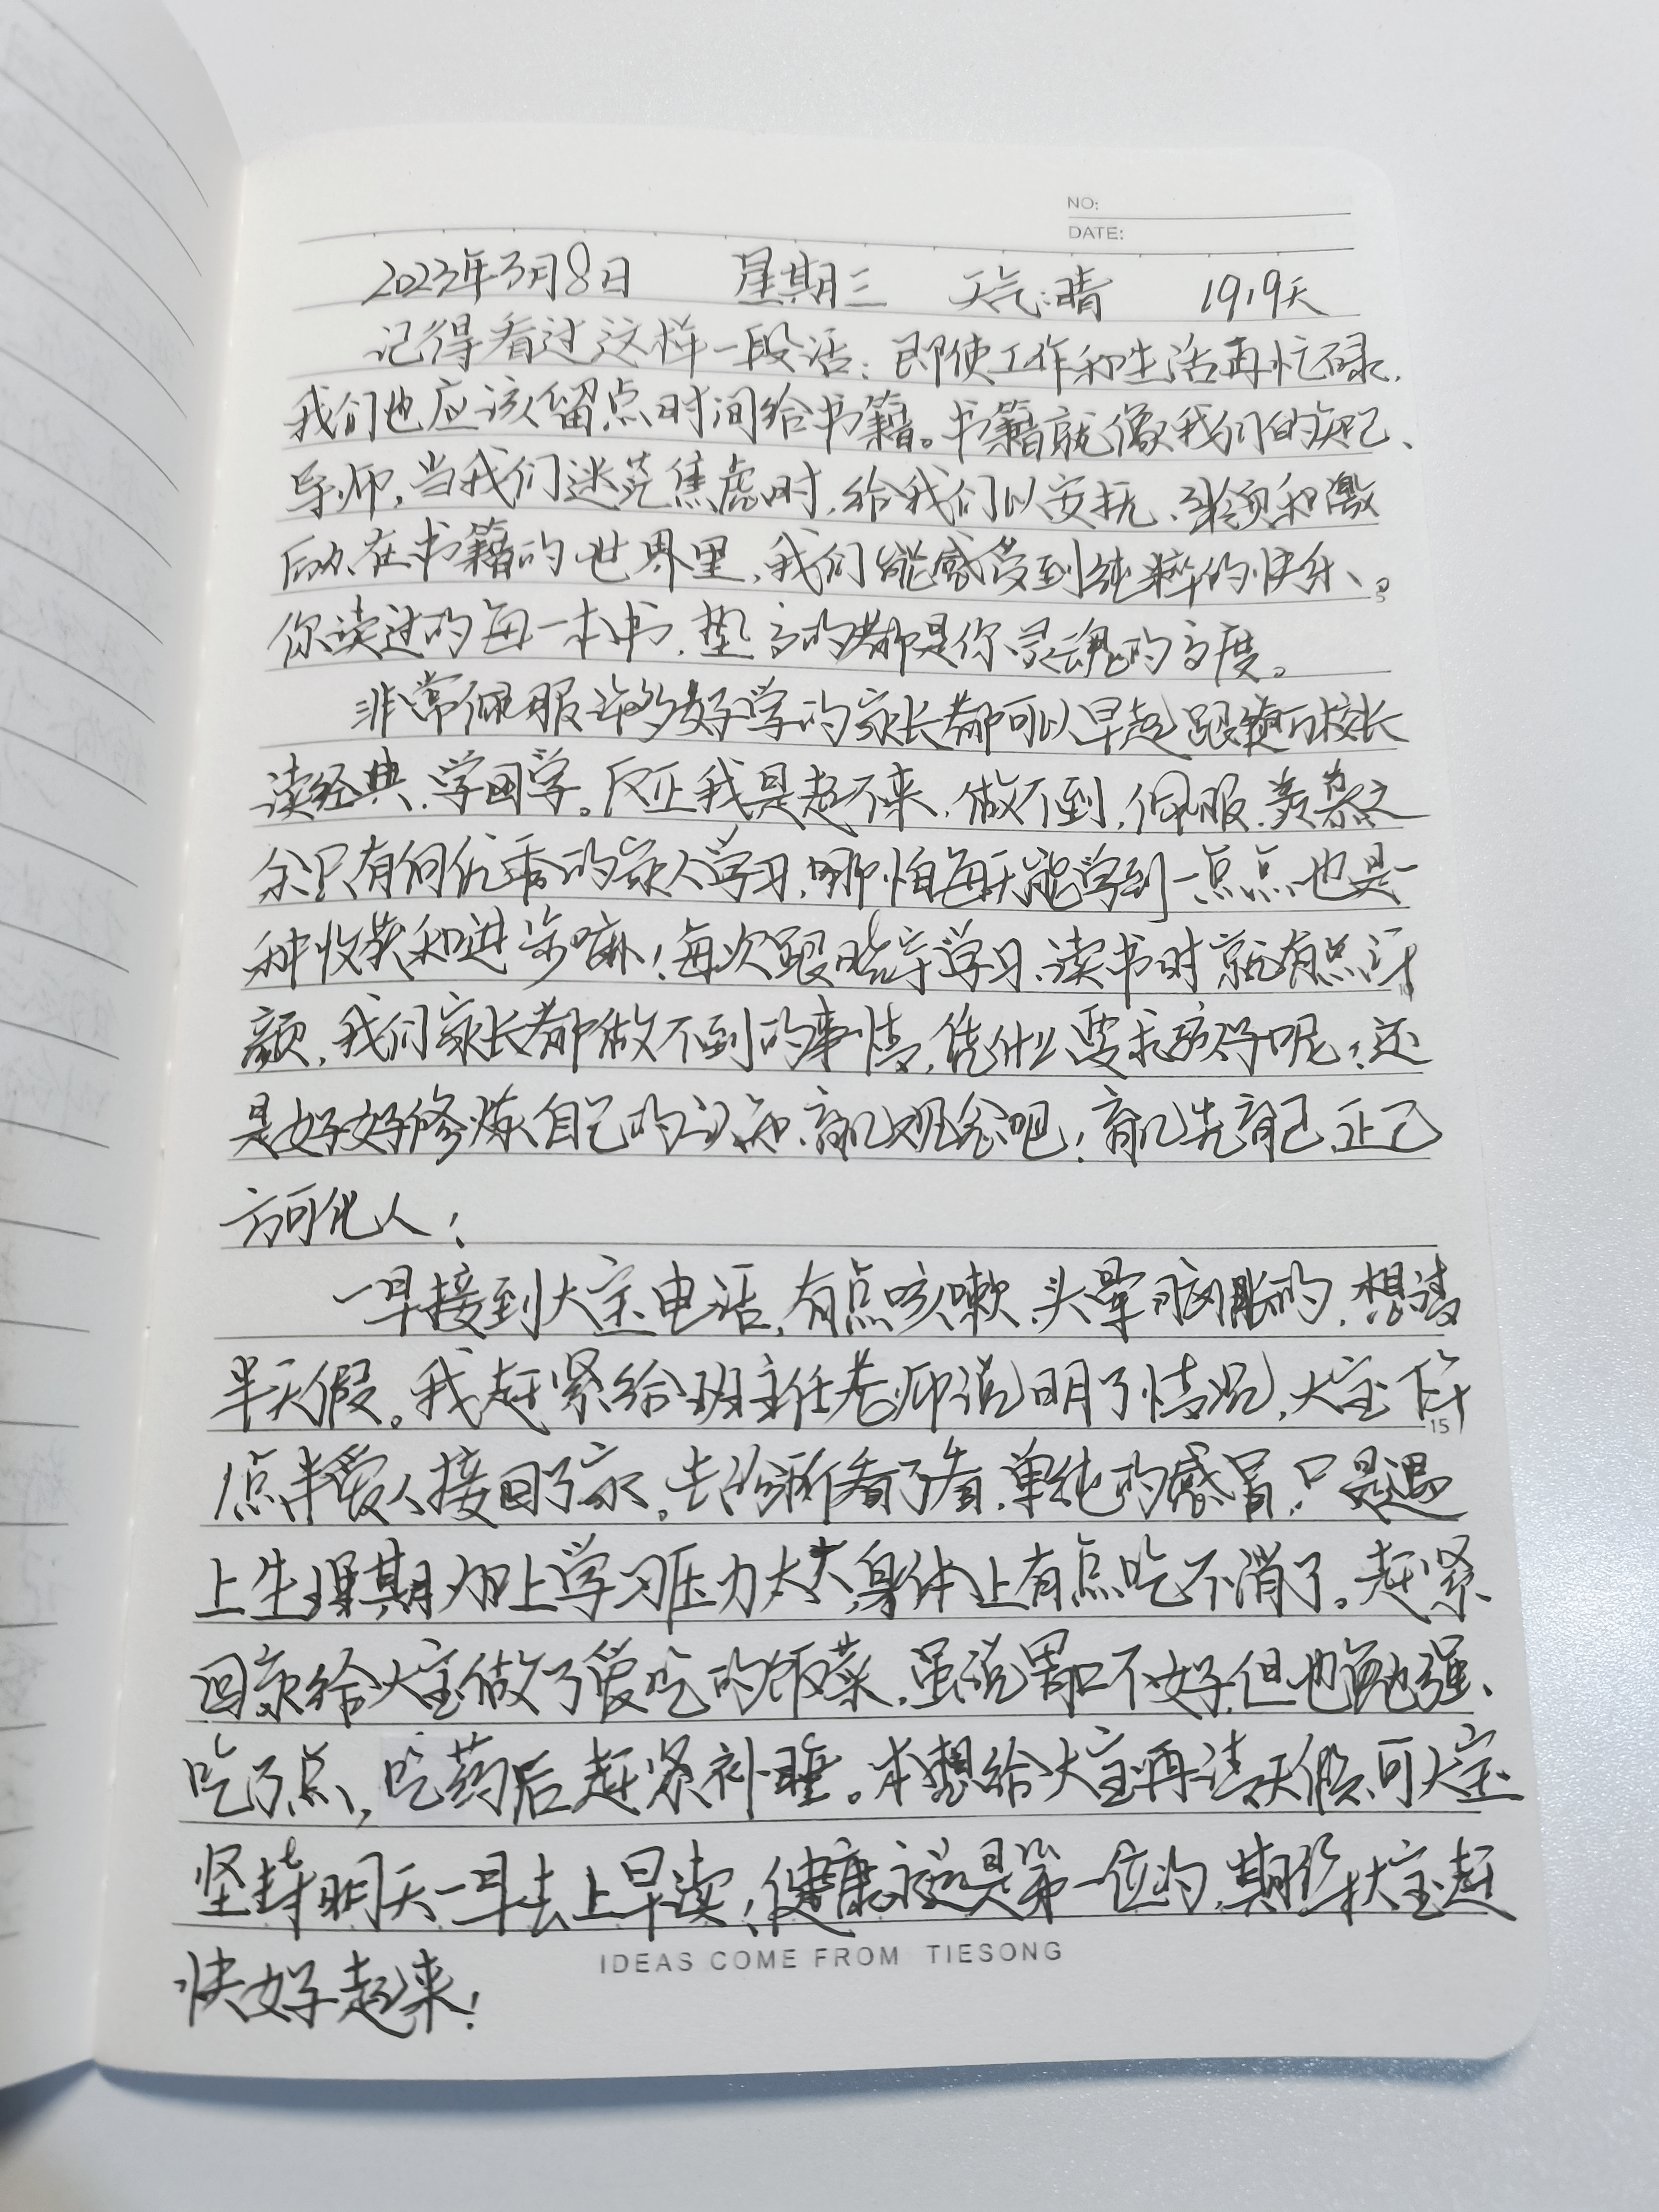 NO:
DATE:
2023年3月8日 星期三 天气:晴 1919天
记得看过这样一段话:即使工作和生活再忙碌,
我们也应该留点时间给书籍。书籍就像我们的知己、
导师,当我们迷茫焦虑时,给我们以安抚、引领和激
励,在书籍的世界里,我们能感受到纯粹的快乐。
你读过的每一本书,垫高的都是你灵魂的高度。
非常佩服许多好学的家长都可以早起跟随校长
读经典,学国学。反正我是起不来,做不到,佩服、羡慕之
余只有向优秀的家人学习,哪怕每天能学到一点点也是一
种收获和进步嘛!每次跟晓宇学习、读书时就有点汗
颜,我们家长都做不到的事情,凭什么要求孩子呢?还
是好好修炼自己的认知、育儿观念吧!育儿先育己,正己
方可化人!
一早接到大宝电话,有点咳嗽,头晕脑胀的,想请
半天假。我赶紧给班主任老师说明了情况,大宝下午
1点半爱人接回了家。去诊所看了看,单纯的感冒,只是遇
上生理期加上学习压力太大,身体上有点吃不消了。赶紧
回家给大宝做了爱吃的饭菜,虽说胃口不好,但也勉强
吃了点,吃药后赶紧补睡。本想给大宝再请天假,可大宝
坚持明天一早去上早读!健康永远是第一位的,期待大宝赶
快好起来!
5
10
15
IDEAS COME FROM TIESONG